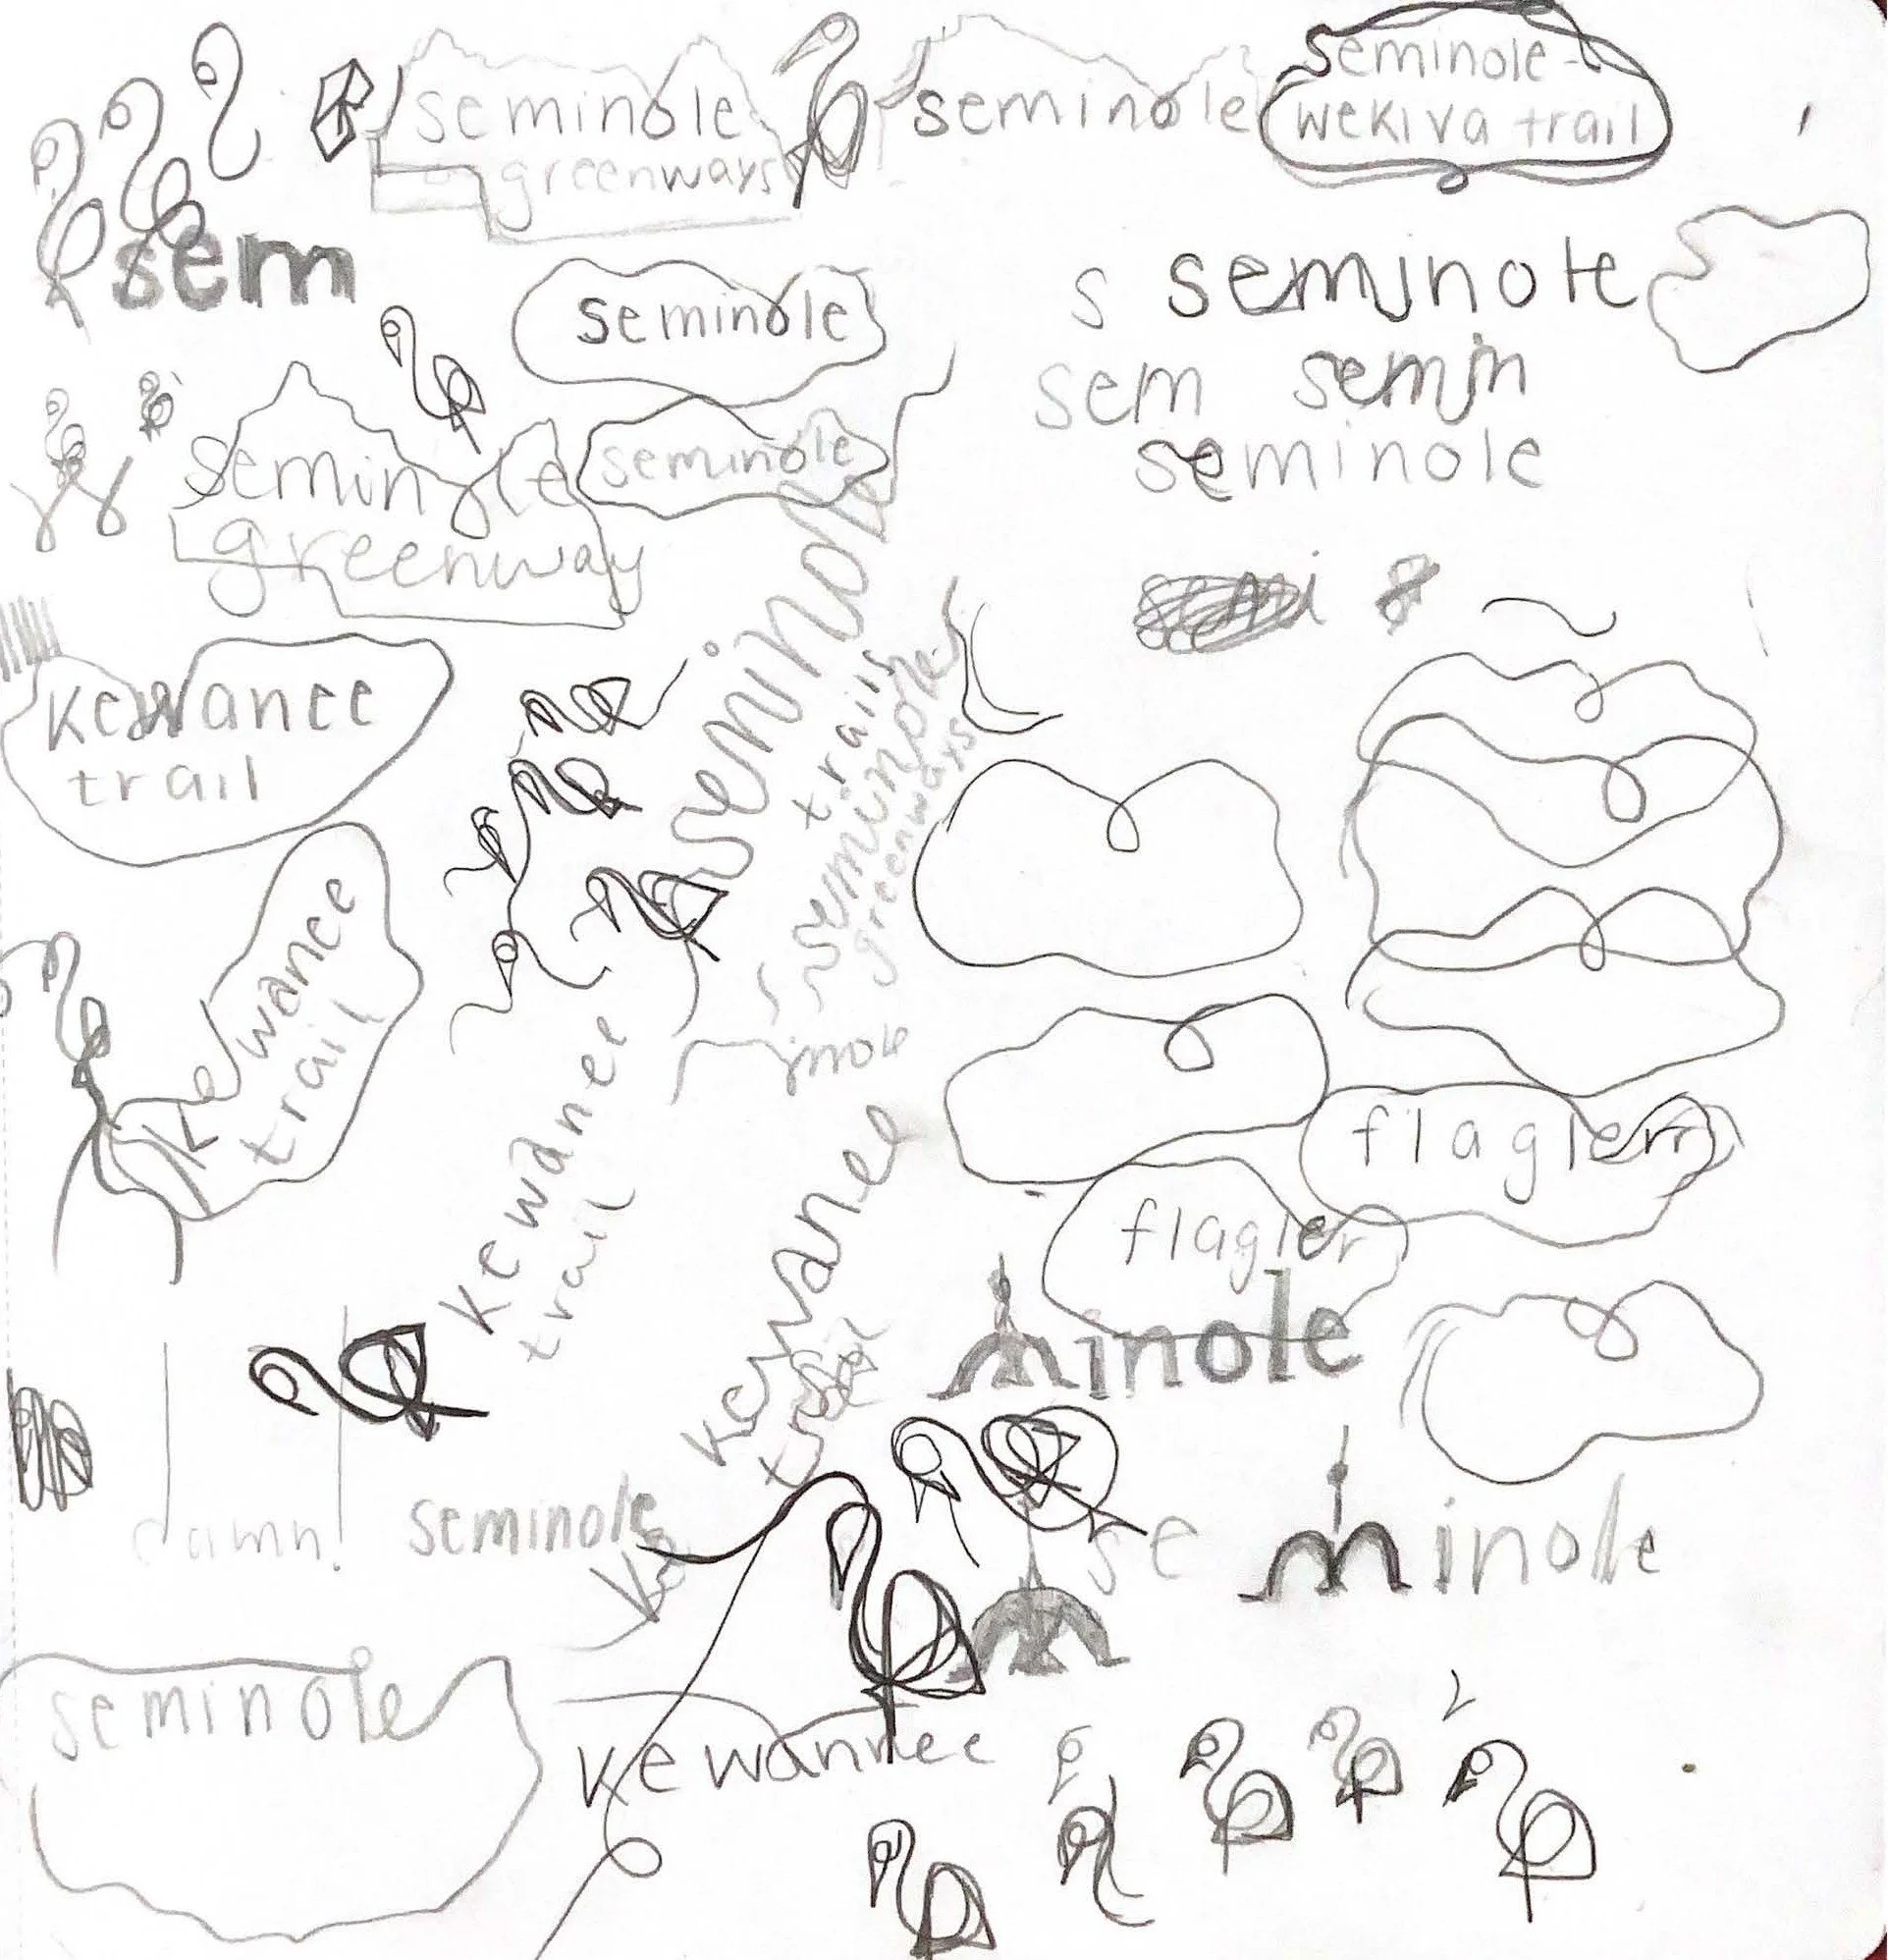 seminole
greenways
seminole
seminole
wekiva trail
sem
seminole
s seminole
sem semin
seminole
seminole
greenway
seminole
semi
seminole
trails
seminole
greenways
kewanee
trail
kewanee
trail
kewanee
trail
kewanee
trail
flagler
flagler
minole
damn!
seminole
se minole
Ke
seminole
kewannee